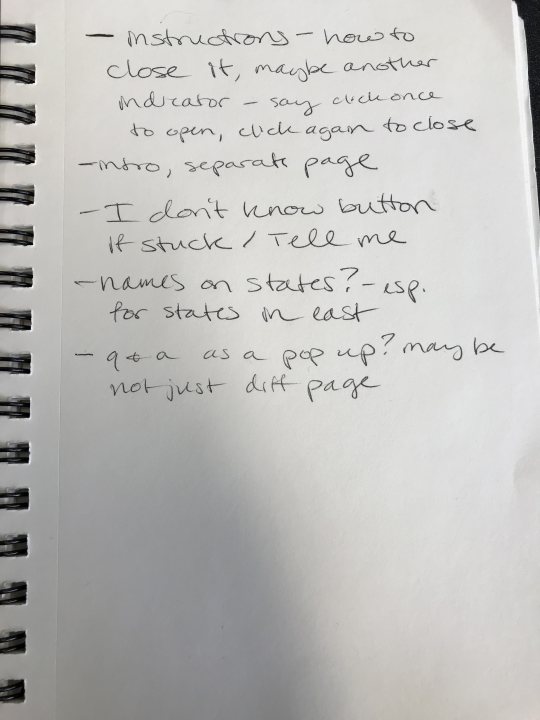 - Instructions - how to
close it, maybe another
indicator - say click once
to open, click again to close
- intro, separate page
- I don't know button
if stuck / Tell me
- names on states? - esp.
for states in east
- q & a as a pop up? maybe
not just diff page